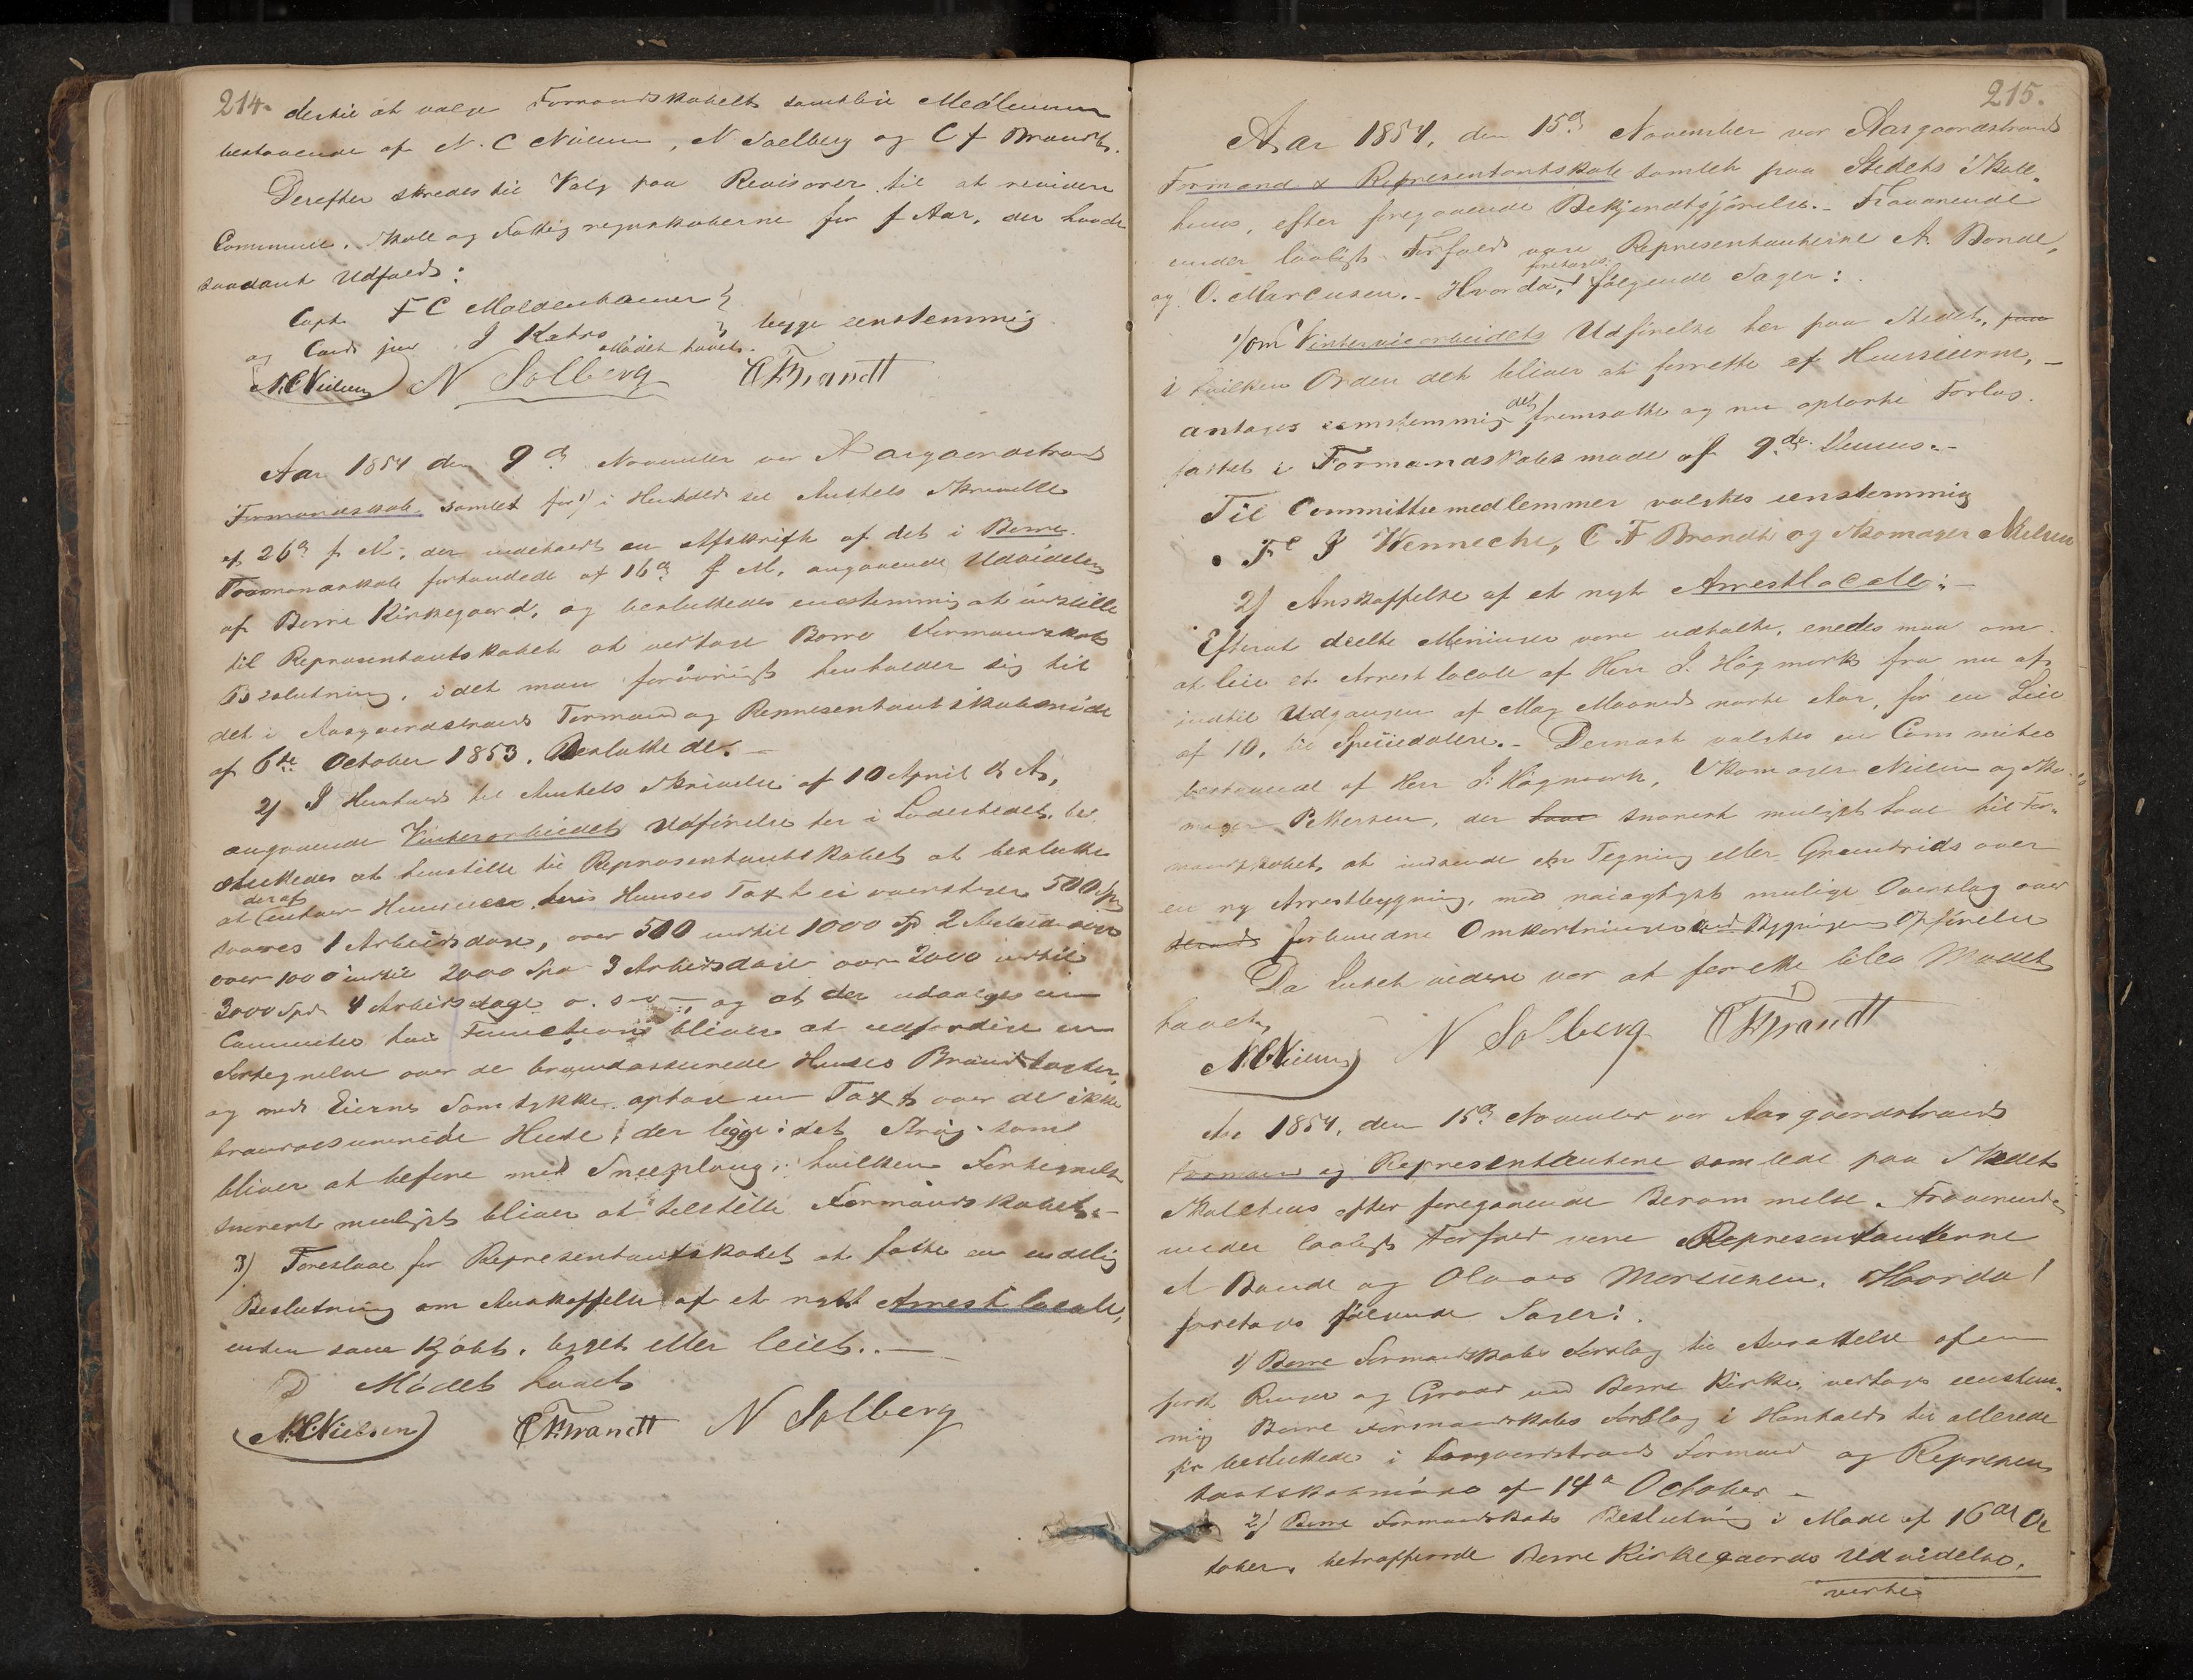 214.
dertil at valge Formandskabets samtlige Medlemmer
bestaaende af N. C Nielsen, N Soelberg og C f Brandt.
Derefter skredes til Valg paa Revisorer til at revidere
Commune, Skole og Fattig regnskaberne for f Aar, der havde
saadant Udfald:
Capt. F C Moldenhauer
og Cand jur J Ketro begge eenstemmig
Mødet hævet.
N.C Nielsen N Solberg CFBrandt
Aar 1854 den 9de November var Aasgaardstrands
Formandskab samlet for 1) i Henhold til Amtets Skrivelse
af 26de f M., der indeholdt en Afskrift af det i Borre
Formandskab forhandlede af 16de f M. angaaende Udvidelse
af Borre Kirkegaard, og besluttedes eenstemmig at indstille
til Repræsentantskabet at vedtage Borre Formandskabs
Beslutning, idet man forøvrigt henholder sig til
det i Aasgaardstrands Formand og Repræsentantskabsmøde
af 6te October 1853. Besluttede. —
2) I Henhold til Amtets Skrivelse af 10 April d A,
angaaende Vinterarbeidets Udførelse her i Ladestedet, be
sluttedes at henstille til Repræsentantskabet at beslutte
at enhver Huuseier deraf, hvis Huuses Taxt ei overstiger 500 Spd
svares 1 Arbeidsdag, over 500 indtil 1000 Spd 2 Arbeidsdage
over 1000 indtil 2000 Spd 3 Arbeidsdage over 2000 indtil
3000 Spd 4 Arbeidsdage o. s. v. — og at der udvælges en
Committee hvis Function bliver at udfærdige en
Fortegnelse over de brandassurerede Huses Brandtaxter,
og med Eiernes Samtykke optage en Taxt over de ikke
brandassurerede Huse, der ligge i det Strøg som
bliver at befare med Sneeploug, hvilken Fortegnelse
snarest muligst bliver at tilstille Formandskabet. —
3) Foreslaae for Repræsentantskabet at fatte en endelig
Beslutning om Anskaffelse af et nyt Arrestlocale,
enten som kjøbt, bygget eller leiet. —
Mødet hævet
N.C Nielsen CFBrandt N Solberg
215.
Aar 1854, den 15de November var Aasgaardstrands
Formand & Representantskab samlet paa Stedets Skole
huus, efter foregaaende Bekjendtgjørelse. Fraværende
under lovligt Forfald vare Representanterne A. Bonde,
og O. Marcusen. Hvorda foretoges følgende Sager:
1) om Vinterveiarbeidets Udførelse her paa Stedet,
i hvilken Orden det bliver at forrette af Huuseierne, —
antoges eenstemmig det fremsatte og nu oplæste Forlag
fattet i Formandskabsmøde af 9de dennes. —
Til Committeemedlemmer valgtes eenstemmig
J Wennecke, C F Brandt og Skomager Nielsen
2) Anskaffelse af et nyt Arrestlocale: —
Efterat deelte Meninger vare udtalte, enedes man om
at leie et Arrestlocale af Herr J. Høgmark fra nu af
indtil Udgangen af May Maaned næste Aar, for en Leie
af 10, ti Speciedalere. — Dernæst valgtes en Commitee
bestaaende af Herr J. Høgmark, Skomager Nielsen og Sko
mager Pettersen, der snarest muligst have til For
mandskabet at indsende en Tegning eller Grundrids over
en ny Arrestbygning, med nøiagtigst mulige Overslag over
forbundne Omkostninger ved Bygningens Opførelse
Da Intet videre var at forrette blev Mødet
hævet,
N.C Nielsen N Solberg CFBrandt
Aar 1854, den 15de November var Aasgaardstrands
Formand og Representantene samlede paa Stedets
Skolehuus efter foregaaende Berammelse. Fraværende
under lovligt Forfald vare Representanterne
A Bonde og Olaves Morcusen. Hvorda!
foretoges følgende Sager:
1) Borre Formandskabs Forslag til Ansættelse af en
fast Ringer og Graver ved Borre Kirke, vedtoges eenstem
mig Borre Formandskabs Forslag i Henhold til allerede
før besluttede i Aasgaardstrands Formand og Represen
tantskabsmøde af 14de October —
2) Borre Formandskabs Beslutning i Møde af 16de Oc
tober, betræffende Borre Kirkegaards Udvidelse,